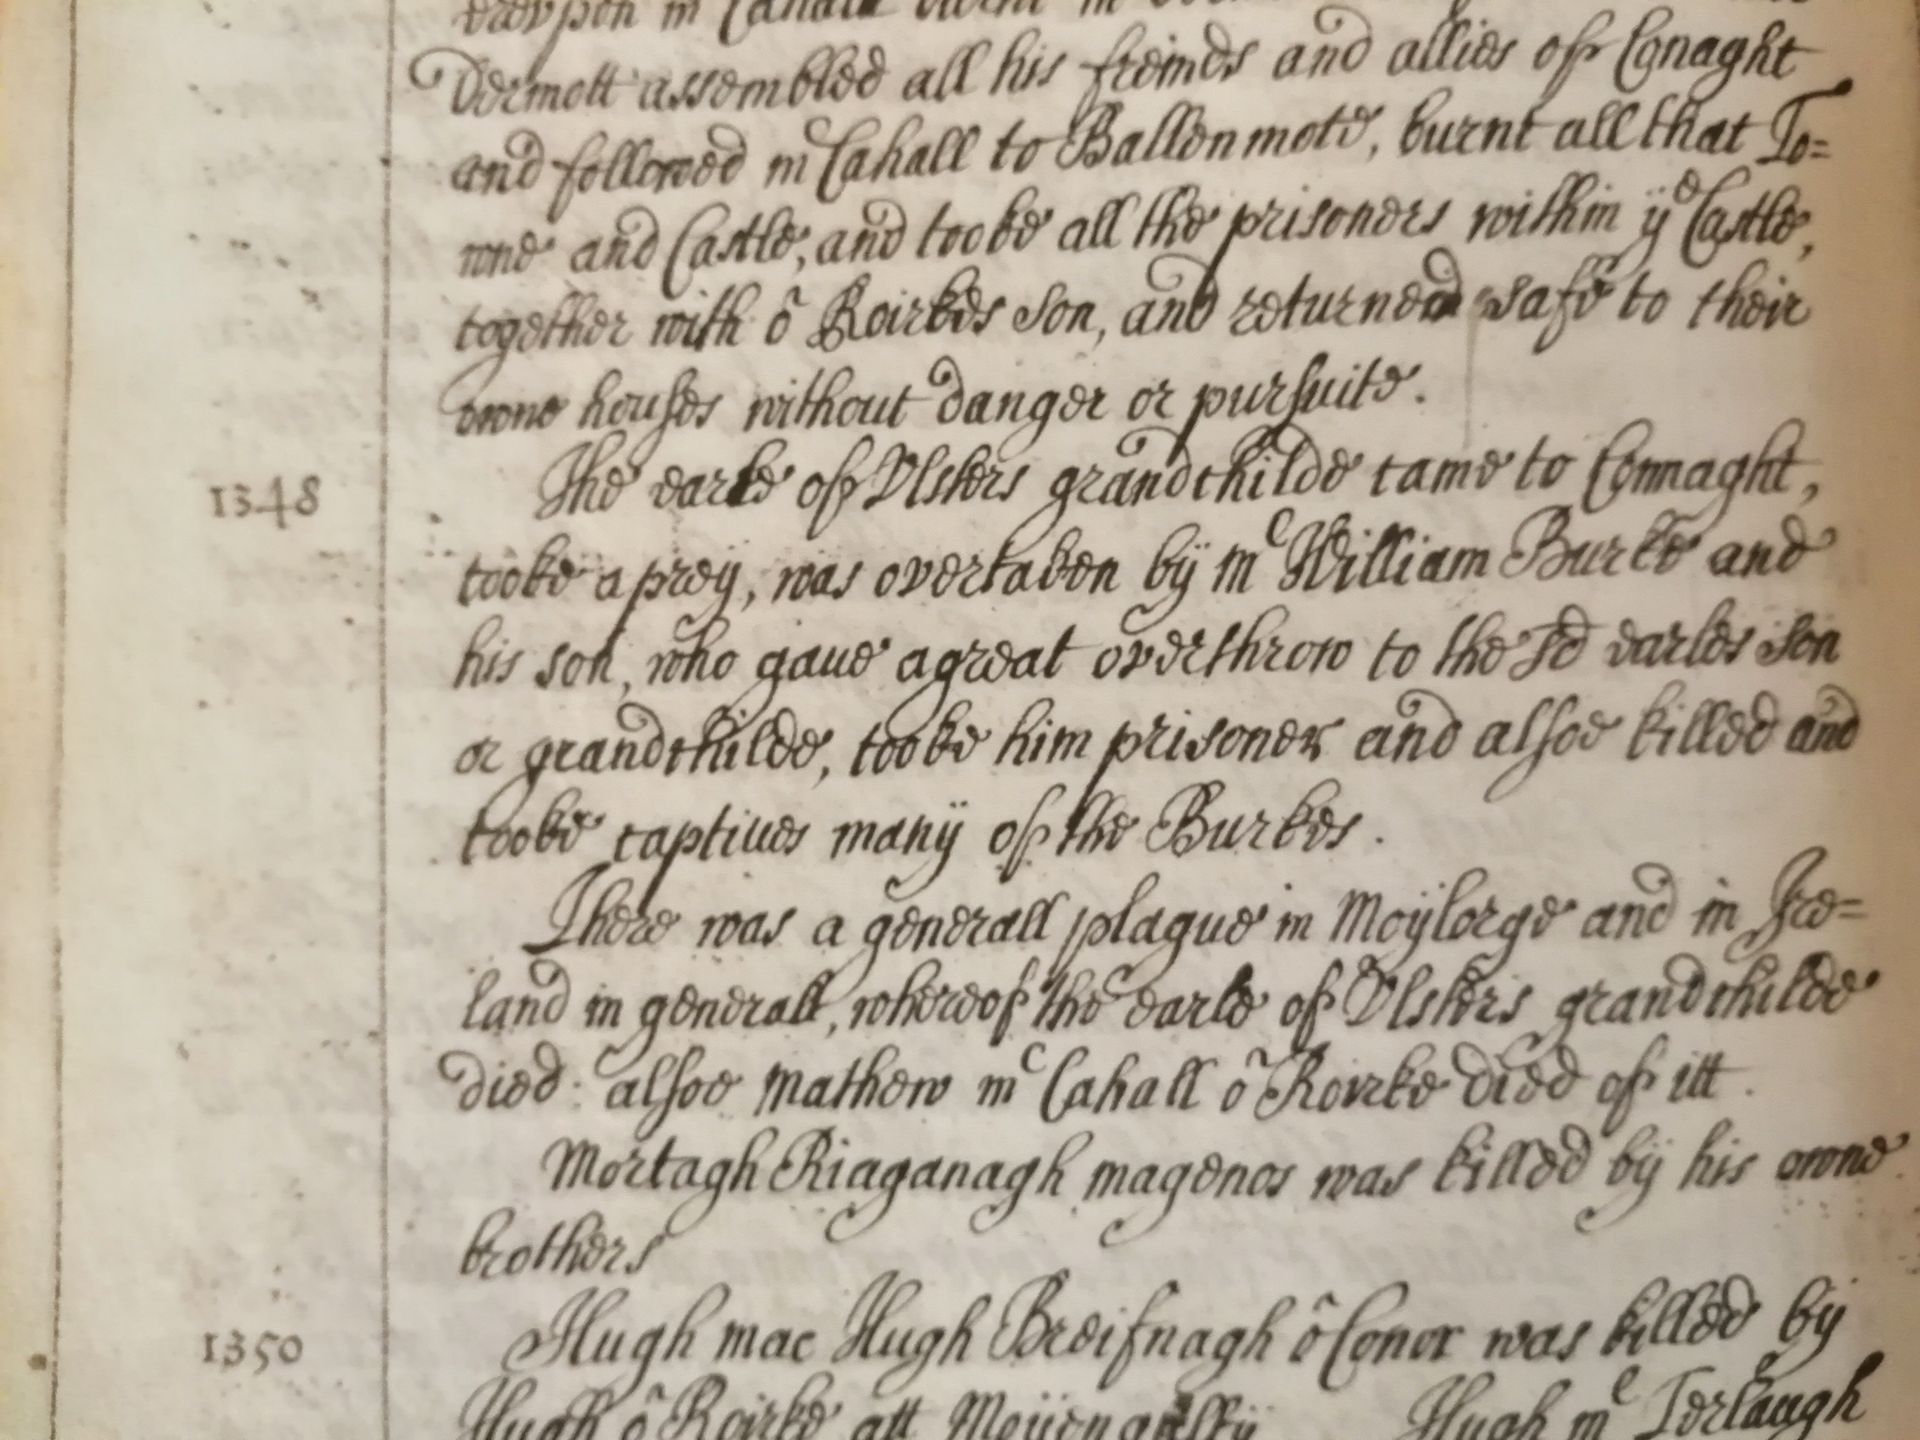 Dermott assembled all his freinds and allies of Conaght
and followed mc Cahall to Ballenmote, burnt all that To=
wne and Castle, and tooke all the prisoners within ye Castle,
together with ô Roirkes son, and returned safe to their
owne houses without danger or pursuite.
1348 The earle of Vlsters grandchilde came to Connaght,
tooke a prey, was overtaken by mc William Burke and
his son, who gaue a great overthrow to the sd earles son
or grandchilde, tooke him prisoner and alsoe killed and
tooke captiues many of the Burkes.
There was a generall plague in Moylorge and in Ire=
land in generall, whereof the earle of Vlsters grandchilde
died: alsoe Mathew mc Cahall ô Rourke died of itt.
Mortagh Riaganagh magenos was killed by his owne
brothers
1350 Hugh mac Hugh Breifnagh ô Conor was killed by
Hugh ô Roirke att Hugh mc Terlaugh